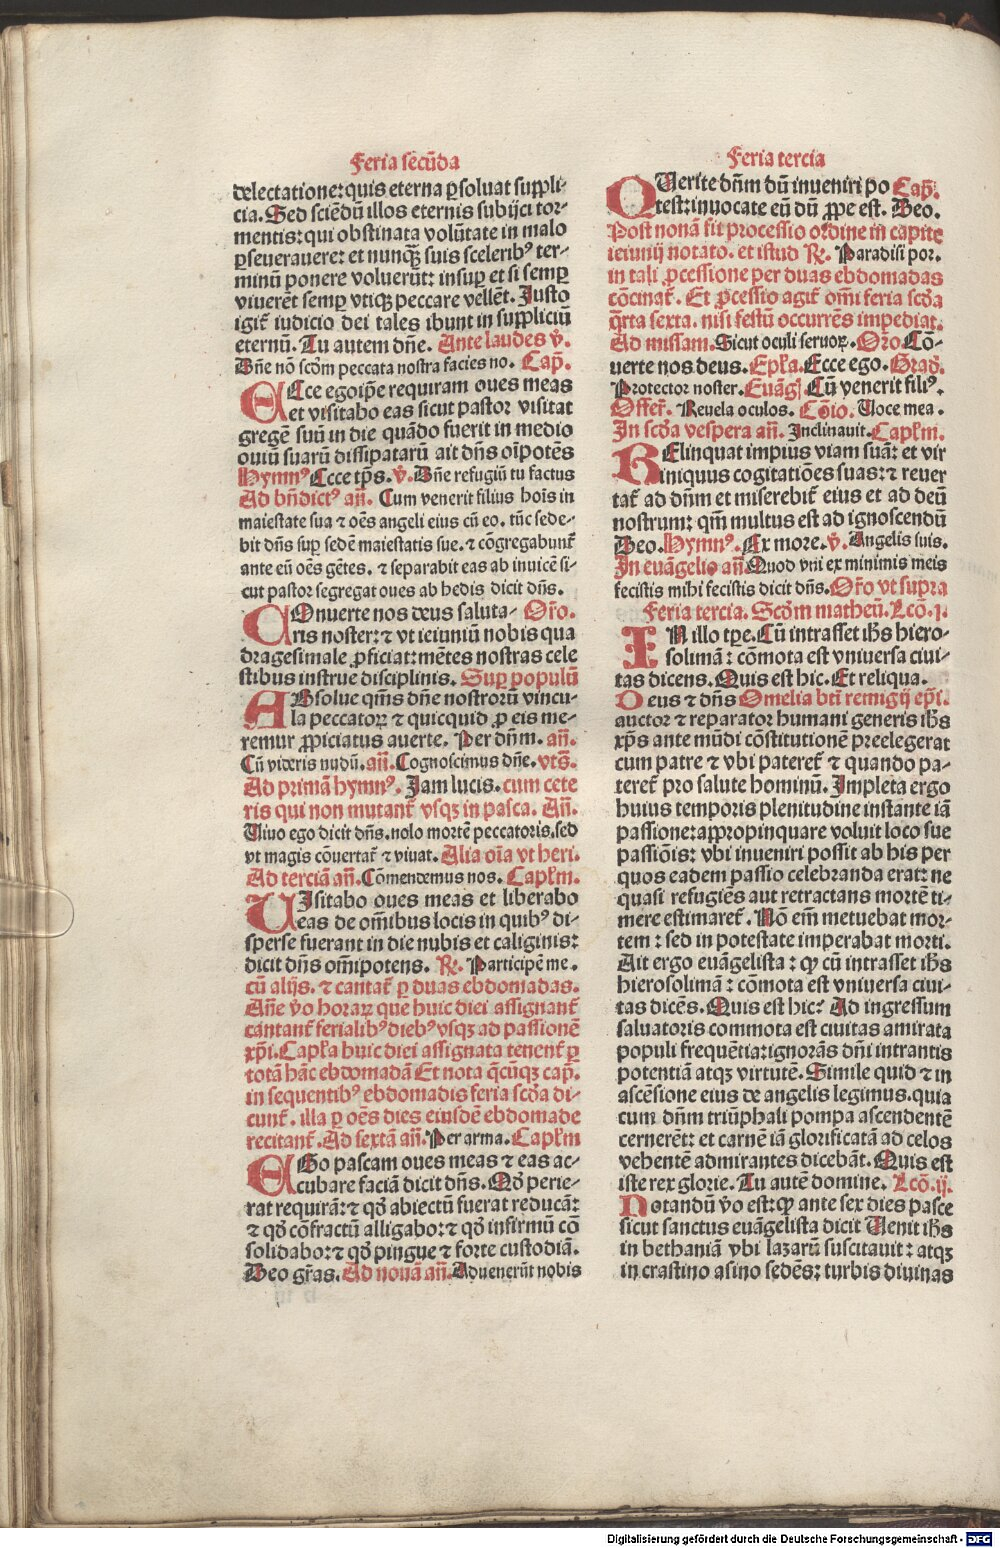 Feria secūda
delectatione: quis eterna ꝑsoluat suppli-
cia. Sed sciēdū illos eternis subijci tor-
mentis: qui obstinata volūtate in malo
ꝑseuerauere: et nunqꝫ suis sceleribꝰ ter-
minū ponere voluerūt: insuꝑ et si semꝑ
viuerēt semꝑ vtiqꝫ peccare vellēt. Justo
igit̄ iudicio dei tales ibunt in suppliciū
eternū. Tu autem dn̄e. Ante laudes v̄.
Dn̄e nō scd̄m peccata nostra facies no. Cap̄.
ECce egoip̄e requiram oues meas
et visitabo eas sicut pastor visitat
gregē suū in die quādo fuerit in medio
ouiū suarū dissipatarū ait dn̄s oīpotēs
Hymnꝰ Ecce tp̄s. v̄. Dn̄e refugiū tu factus
Ad bn̄dictꝰ an̄. Cum venerit filius hoīs in
maiestate sua ⁊ oēs angeli eius cū eo. tūc sede-
bit dn̄s suꝑ sedē maiestatis sue. ⁊ cōgregabunt̄
ante eū oēs gētes. ⁊ separabit eas ab inuicē si-
cut pastor segregat oues ab hedis dicit dn̄s.
COnuerte nos deus saluta- Or̄o.
ris noster: ⁊ vt ieiuniū nobis qua
dragesimale ꝓficiat: mētes nostras cele
stibus instrue disciplinis. Suꝑ populū
ABsolue qm̄s dn̄e nostrorū vincu-
la peccatoꝝ ⁊ quicquid ꝓ eis me-
remur ꝓpiciatus auerte. Per dn̄m. an̄.
Cū videris nudū. an̄. Cognoscimus dn̄e. vts̄.
Ad primā hymnꝰ. Jam lucis. cum cete
ris qui non mutant̄ vsqꝫ in pasca. An̄.
Viuo ego dicit dn̄s. nolo mortē peccatoris. sed
vt magis cōuertat̄ ⁊ viuat. Alia oīa vt heri.
Ad terciā an̄. Cōmendemus nos. Capl̄m.
VIsitabo oues meas et liberabo
eas de om̄ibus locis in quibꝰ di-
sperse fuerant in die nubis et caliginis:
dicit dn̄s om̄ipotens. ℟. Participē me.
cū alijs. ⁊ cantat̄ ꝑ duas ebdomadas.
An̄e v̄o horaꝝ que huic diei assignant̄
cantant̄ ferialibꝰ diebꝰ vsqꝫ ad passionē
xp̄i. Capl̄a huic diei assignata tenent̄ ꝑ
totā hāc ebdomadā Et nota q̄cūqꝫ cap̄.
in sequentibꝰ ebdomadis feria scd̄a di-
cunt̄. illa ꝑ oēs dies eiusdē ebdomade
recitant̄. Ad sextā an̄. Per arma. Capl̄m
EGo pascam oues meas ⁊ eas ac-
cubare faciā dicit dn̄s. Qd̄ perie-
rat requirā: ⁊ qd̄ abiectū fuerat reducā:
⁊ qd̄ cōfractū alligabo: ⁊ qd̄ infirmū cō
solidabo: ⁊ qd̄ pingue ⁊ forte custodiā.
Deo gr̄as. Ad nonā an̄. Aduenerūt nobis
Feria tercia
QVerite dn̄m dū inueniri po Cap̄.
test: inuocate eū dū ꝓpe est. Deo.
Post nonā fit processio ordine in capite
ieiunij notato. et istud ℟. Paradisi por.
in tali ꝓcessione per duas ebdomadas
cōcinat̄. Et ꝓcessio agit̄ om̄i feria scd̄a
q̄rta sexta. nisi festū occurrēs impediat.
Ad missam. Sicut oculi seruoꝝ. Or̄o. Cō-
uerte nos deus. Epl̄a. Ecce ego. Grad̄.
Protector noster. Euāgl̄. Cū venerit filiꝰ.
Offer̄. Reuela oculos. Cōio. Uoce mea.
In scd̄a vespera an̄. Inclinauit. Capl̄m.
DElinquat impius viam suā: et vir
iniquus cogitatiōes suas: ⁊ reuer
tat̄ ad dn̄m et miserebit̄ eius et ad deū
nostrum: qm̄ multus est ad ignoscendū
Deo. Hymnꝰ. Ex more. v̄. Angelis suis.
In euāgelio an̄. Quod vni ex minimis meis
fecistis mihi fecistis dicit dn̄s. Or̄o vt supra
Feria tercia. Scd̄m matheū. Lcō. j.
IN illo tp̄e. Cū intrasset ih̄s hiero-
solimā: cōmota est vniuersa ciui-
tas dicens. Quis est hic. Et reliqua.
Deus ⁊ dn̄s Omelia bt̄i remigij ep̄i.
auctor ⁊ reparator humani generis ih̄s
xp̄s ante mūdi cōstitutionē preelegerat
cum patre ⁊ vbi pateret̄ ⁊ quando pa-
teret̄ pro salute hominū. Impleta ergo
huius temporis plenitudine instante iā
passione: appropinquare voluit loco sue
passiōis: vbi inueniri possit ab his per
quos eadem passio celebranda erat: ne
quasi refugiēs aut retractans mortē ti-
mere estimaret̄. Nō em̄ metuebat mor-
tem: sed in potestate imperabat morti.
Ait ergo euāgelista: ꝙ cū intrasset ih̄s
hierosolimā: cōmota est vniuersa ciui-
tas dicēs. Quis est hic? Ad ingressum
saluatoris commota est ciuitas amirata
populi frequētia: ignorās dn̄i intrantis
potentiā atqꝫ virtutē. Simile quid ⁊ in
ascēsione eius de angelis legimus. quia
cum dn̄m triūphali pompa ascendentē
cernerēt: et carnē iā glorificatā ad celos
vehentē admirantes dicebāt. Quis est
iste rex glorie. Tu autē domine. Lcō. ij.
Notandū v̄o est: ꝙ ante sex dies pasce
sicut sanctus euāgelista dicit Venit ih̄s
in bethaniā vbi lazarū suscitauit: atqꝫ
in crastino asino sedēs: turbis diuinas
Digitalisierung gefördert durch die Deutsche Forschungsgemeinschaft - DFG